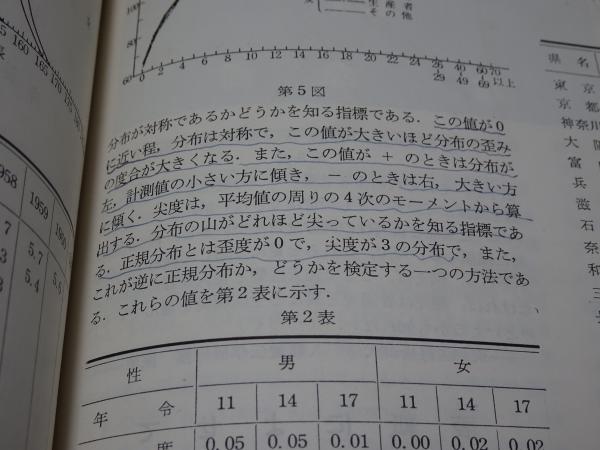 100
80
60
0 2 4 6 8 10 12 14 16 18 20 22 24 26 36 46 60 70以上
29 49 69
生産者
その他
第5図
分布が対称であるかどうかを知る指標である．この値が0
に近い程，分布は対称で，この値が大きいほど分布の歪み
の度合が大きくなる．また，この値が + のときは分布が
左，計測値の小さい方に傾き，− のときは右，大きい方
に傾く．尖度は，平均値の周りの4次のモーメントから算
出する．分布の山がどれほど尖っているかを知る指標であ
る．正規分布とは歪度が0で，尖度が3の分布で，また，
これが逆に正規分布か，どうかを検定する一つの方法であ
る．これらの値を第2表に示す．
第2表
性 男 女
年令 11 14 17 11 14 17
度 0.05 0.05 0.01 0.00 0.02 0.02
160 165 170 175
1958 1959 1960
5.7 5.6
5.4
県名
東京
京都
神奈川
大
富
兵
滋
石
奈
和
三